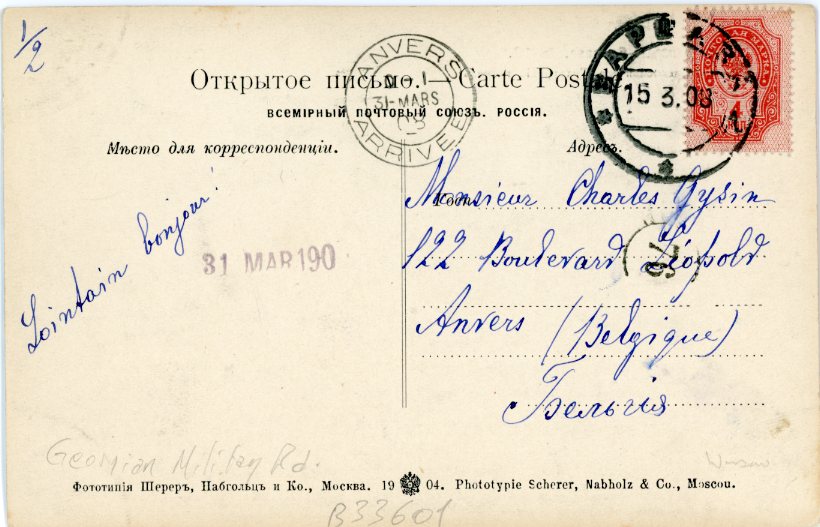 1/2
Открытое письмо. Carte Postale
ВСЕМІРНЫЙ ПОЧТОВЫЙ СОЮЗЪ. РОССІЯ.
ANVERS
31-MARS
ARRIVÉE
15 3.08
ПОЧТОВАЯ МАРКА
Мѣсто для корреспонденціи.
Адресъ.
Lointain bonjour!
31 MAR 190
Monsieur Charles Gysin
122 Boulevard Léopold
Anvers (Belgique)
Бельгія
Georgian Military Rd.
Warsaw
Фототипія Шереръ, Набгольцъ и Ко., Москва. 19 04. Phototypie Scherer, Nabholz & Co., Moscou.
B33601